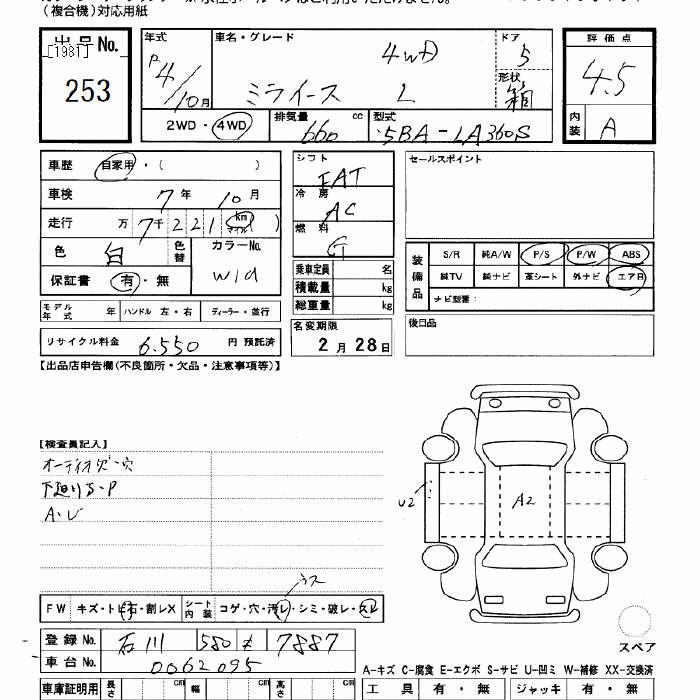 (複合機)対応用紙
出品No.
[1981]
253
年式
車名・グレード
4WD
ドア
5
評価点
4.5
R4/10月
ミライース L
形状
箱
2WD・4WD
排気量
660 cc
型式
5BA-LA360S
内装
A
車歴 自家用・( )
車検 7年 10月
走行 万7千221km
色 白 色替 カラーNo. W19
保証書 有・無
モデル年式 年 ハンドル 左・右 ディーラー・並行
リサイクル料金 6.550 円 預託済
シフト
FAT
冷房
AC
燃料
G
乗車定員 名
積載量 kg
総重量 kg
名変期限
2月28日
セールスポイント
装備品
S/R 純A/W P/S P/W ABS
純TV 純ナビ 革シート 外ナビ エアB
ナビ型番:
後日品
【出品店申告欄(不良箇所・欠品・注意事項等)】
【検査員記入】
オーディオダー穴
下廻りS・P
A・U
U2
A2
ウス
FW キズ・トビ石・割レX シート内装 コゲ・穴・汚レ・シミ・破レ・スレ
登録No. 石川 580 そ 7887
車台No. 0062095
スペア
A-キズ C-腐食 E-エクボ S-サビ U-凹ミ W-補修 XX-交換済
車庫証明用 長さ cm 幅 cm 高さ cm
工具 有・無 ジャッキ 有・無